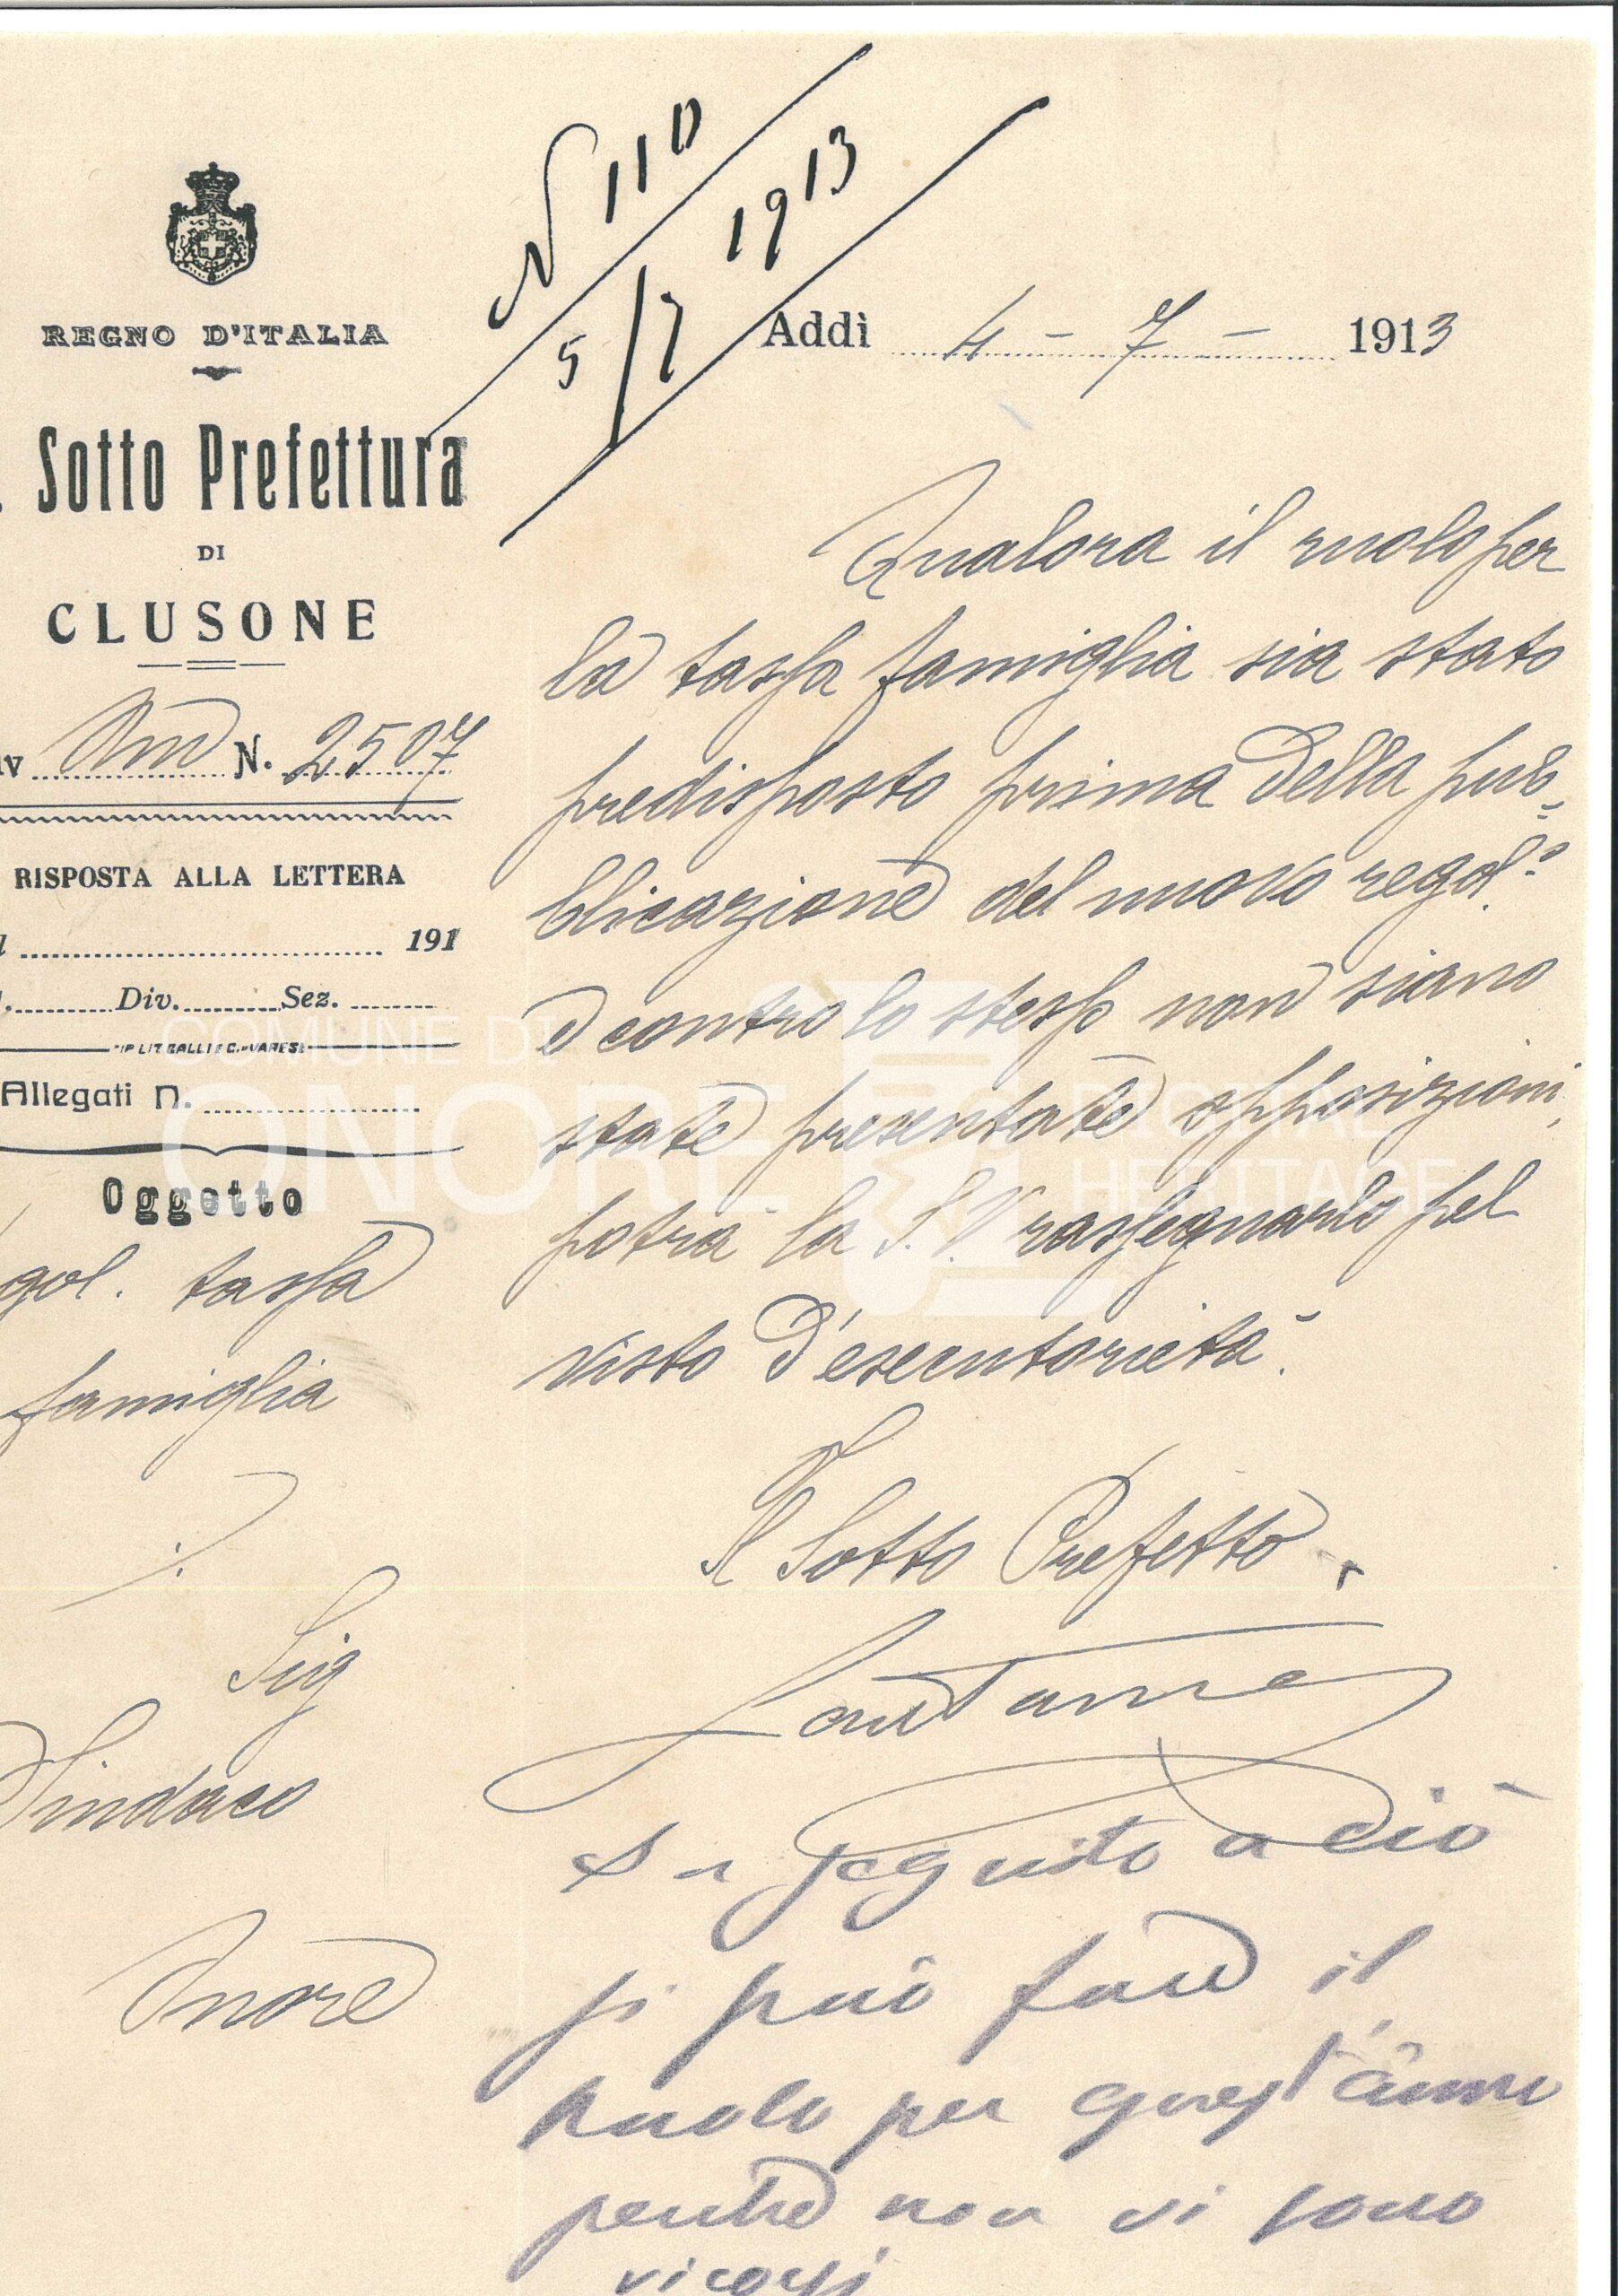 N 110
1913
5/7
REGNO D'ITALIA
Sotto Prefettura
DI
CLUSONE
N. 2507
RISPOSTA ALLA LETTERA
191
Div. Sez.
Allegati N.
Oggetto
gol. tassa
famiglia
Sig
Sindaco
Onore
Addì 4 - 7 - 1913
Qualora il ruolo per
la tassa famiglia sia stato
predisposto prima della pub=
blicazione del nuovo regol.o
e contro lo stesso non siano
state presentate opposizioni,
potrà la S.V. rassegnarlo pel
visto d'esecutorietà.
Il Sotto Prefetto
In seguito a ciò
si può fare il
Ruolo per quest'anno
perchè non vi sono
ricorsi
COMUNE DI
ONORE
DIGITAL
HERITAGE